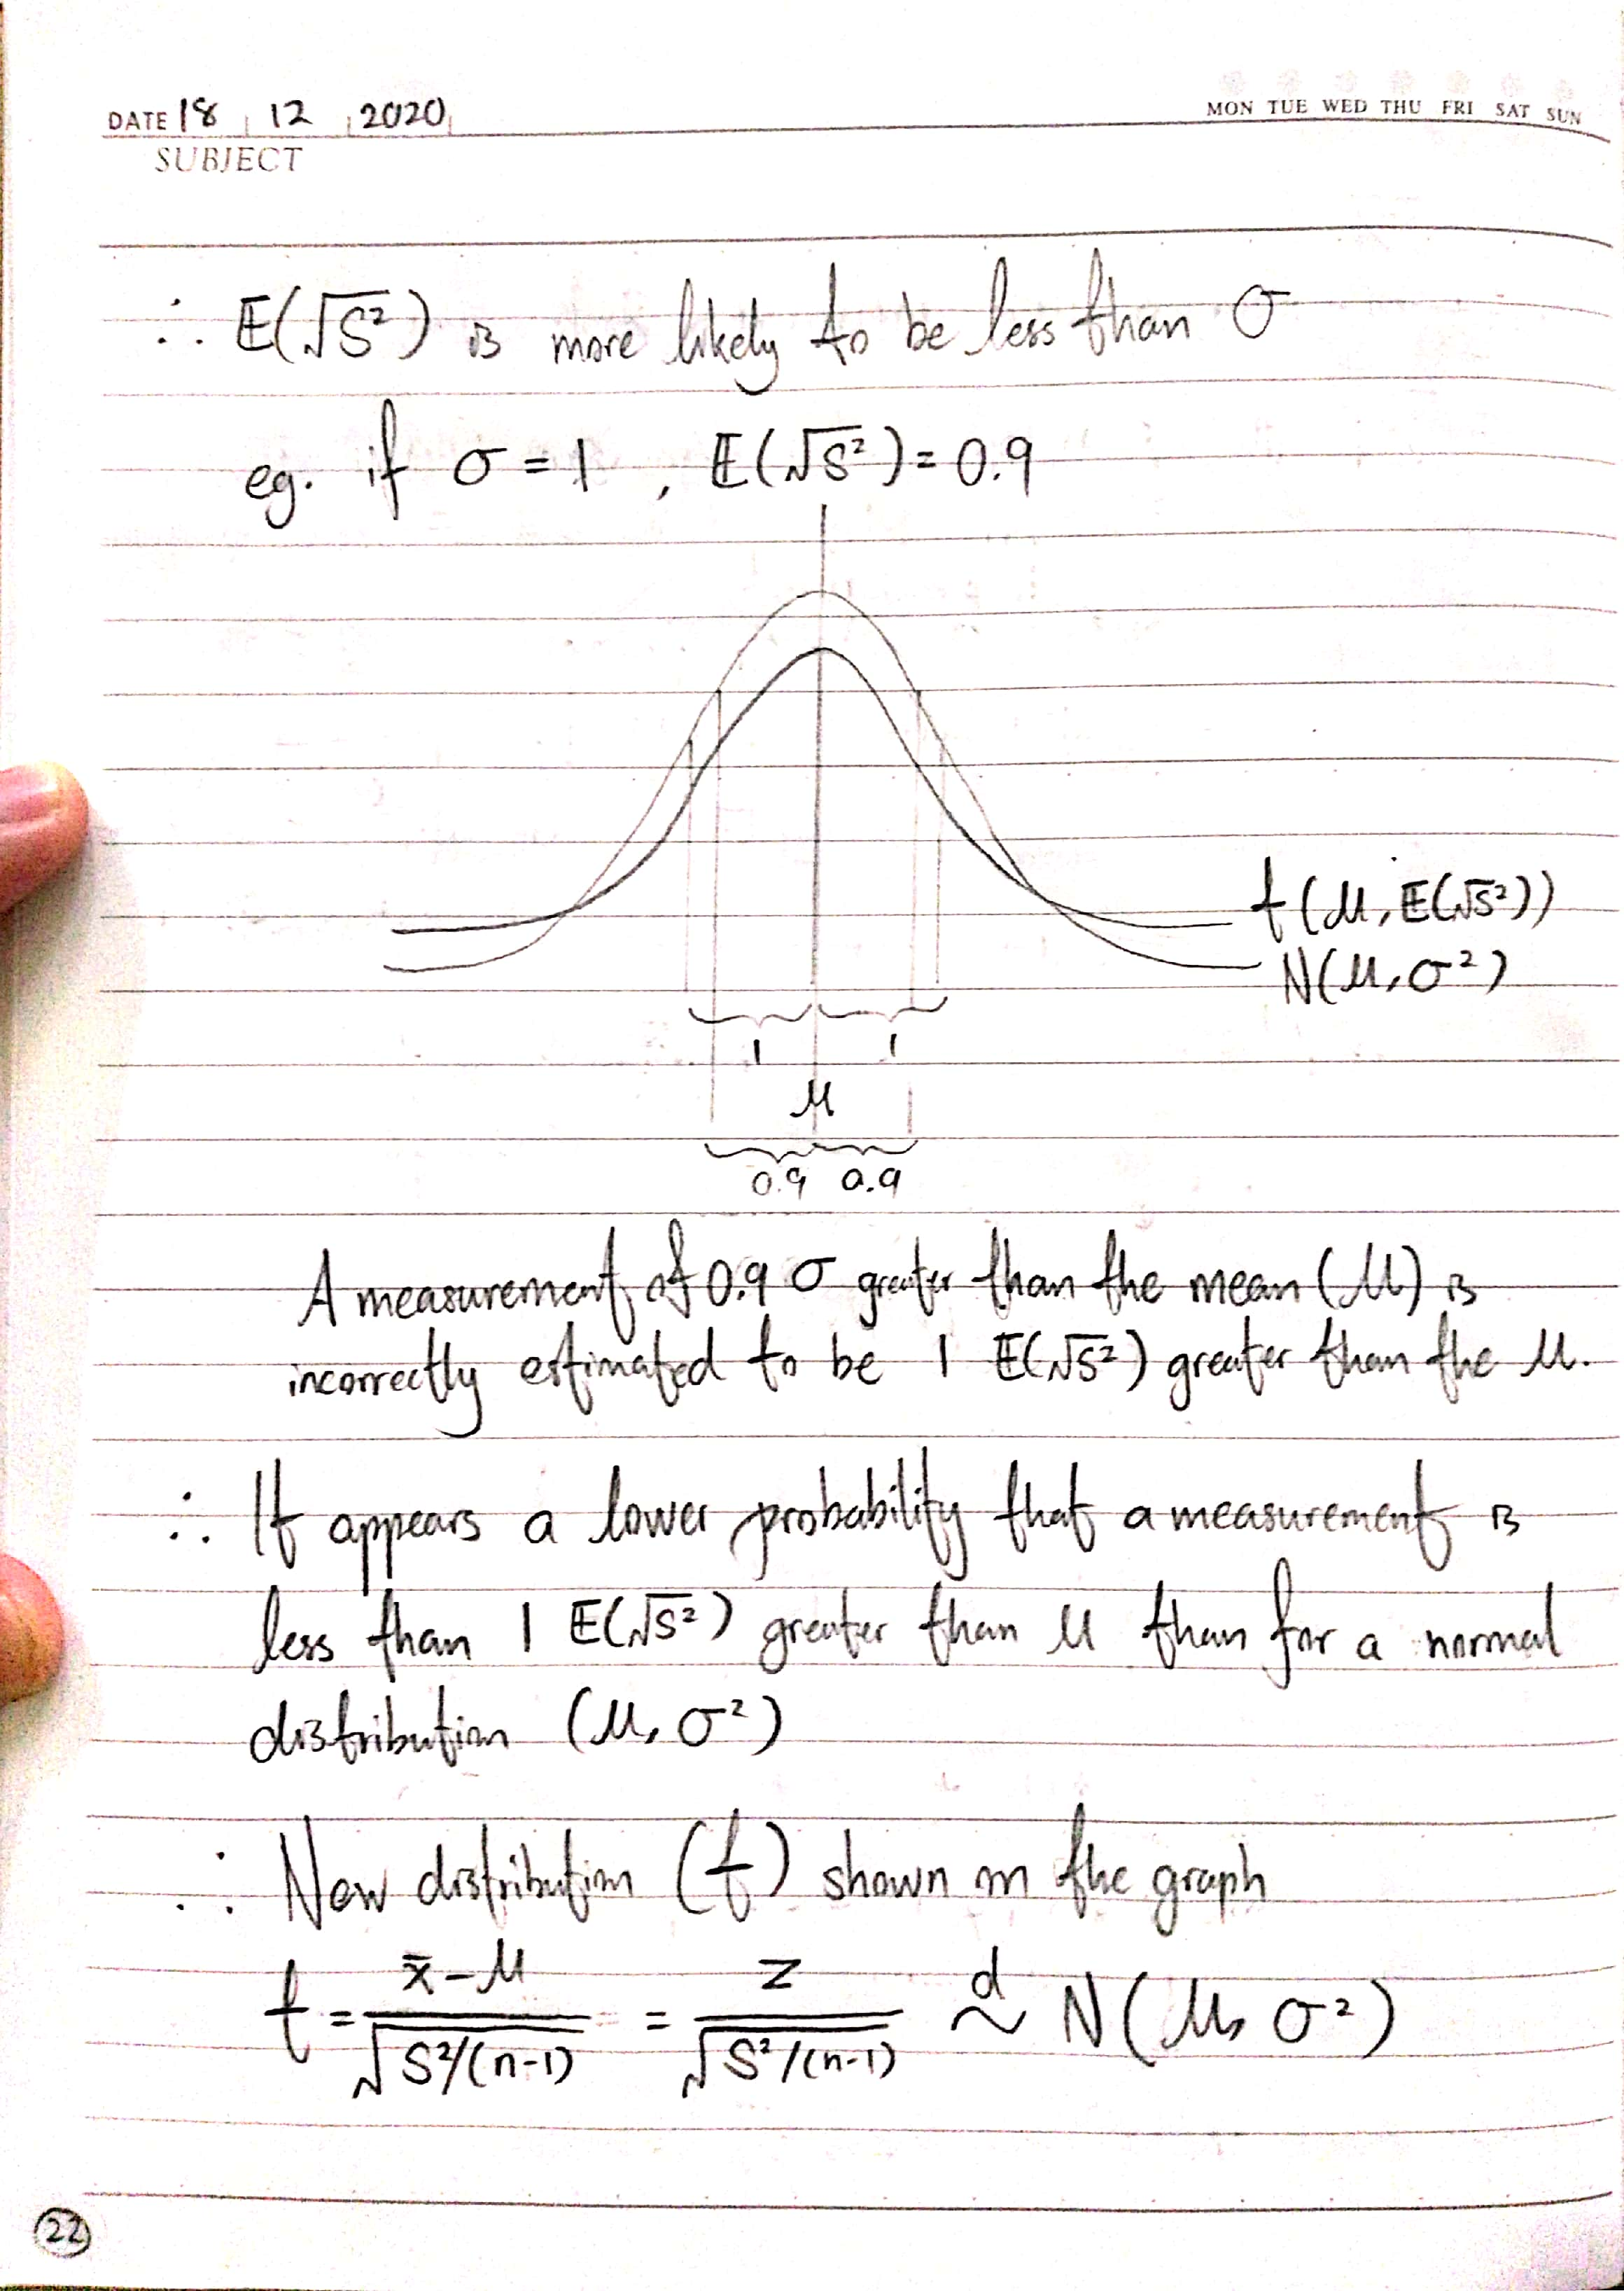 DATE 18 12 2020
MON TUE WED THU FRI SAT SUN
SUBJECT
∴ E(√S²) is more likely to be less than σ
eg. if σ = 1 , E(√S²) = 0.9
t(μ, E(√S²))
N(μ, σ²)
1 1
μ
0.9 0.9
A measurement of 0.9 σ greater than the mean (μ) is
incorrectly estimated to be 1 E(√S²) greater than the μ.
∴ It appears a lower probability that a measurement is
less than 1 E(√S²) greater than μ than for a normal
distribution (μ, σ²)
∴ New distribution (t) shown in the graph
t = x̄-μ / √S²/(n-1) = z / √S²/(n-1) d ~ N(μ, σ²)
22